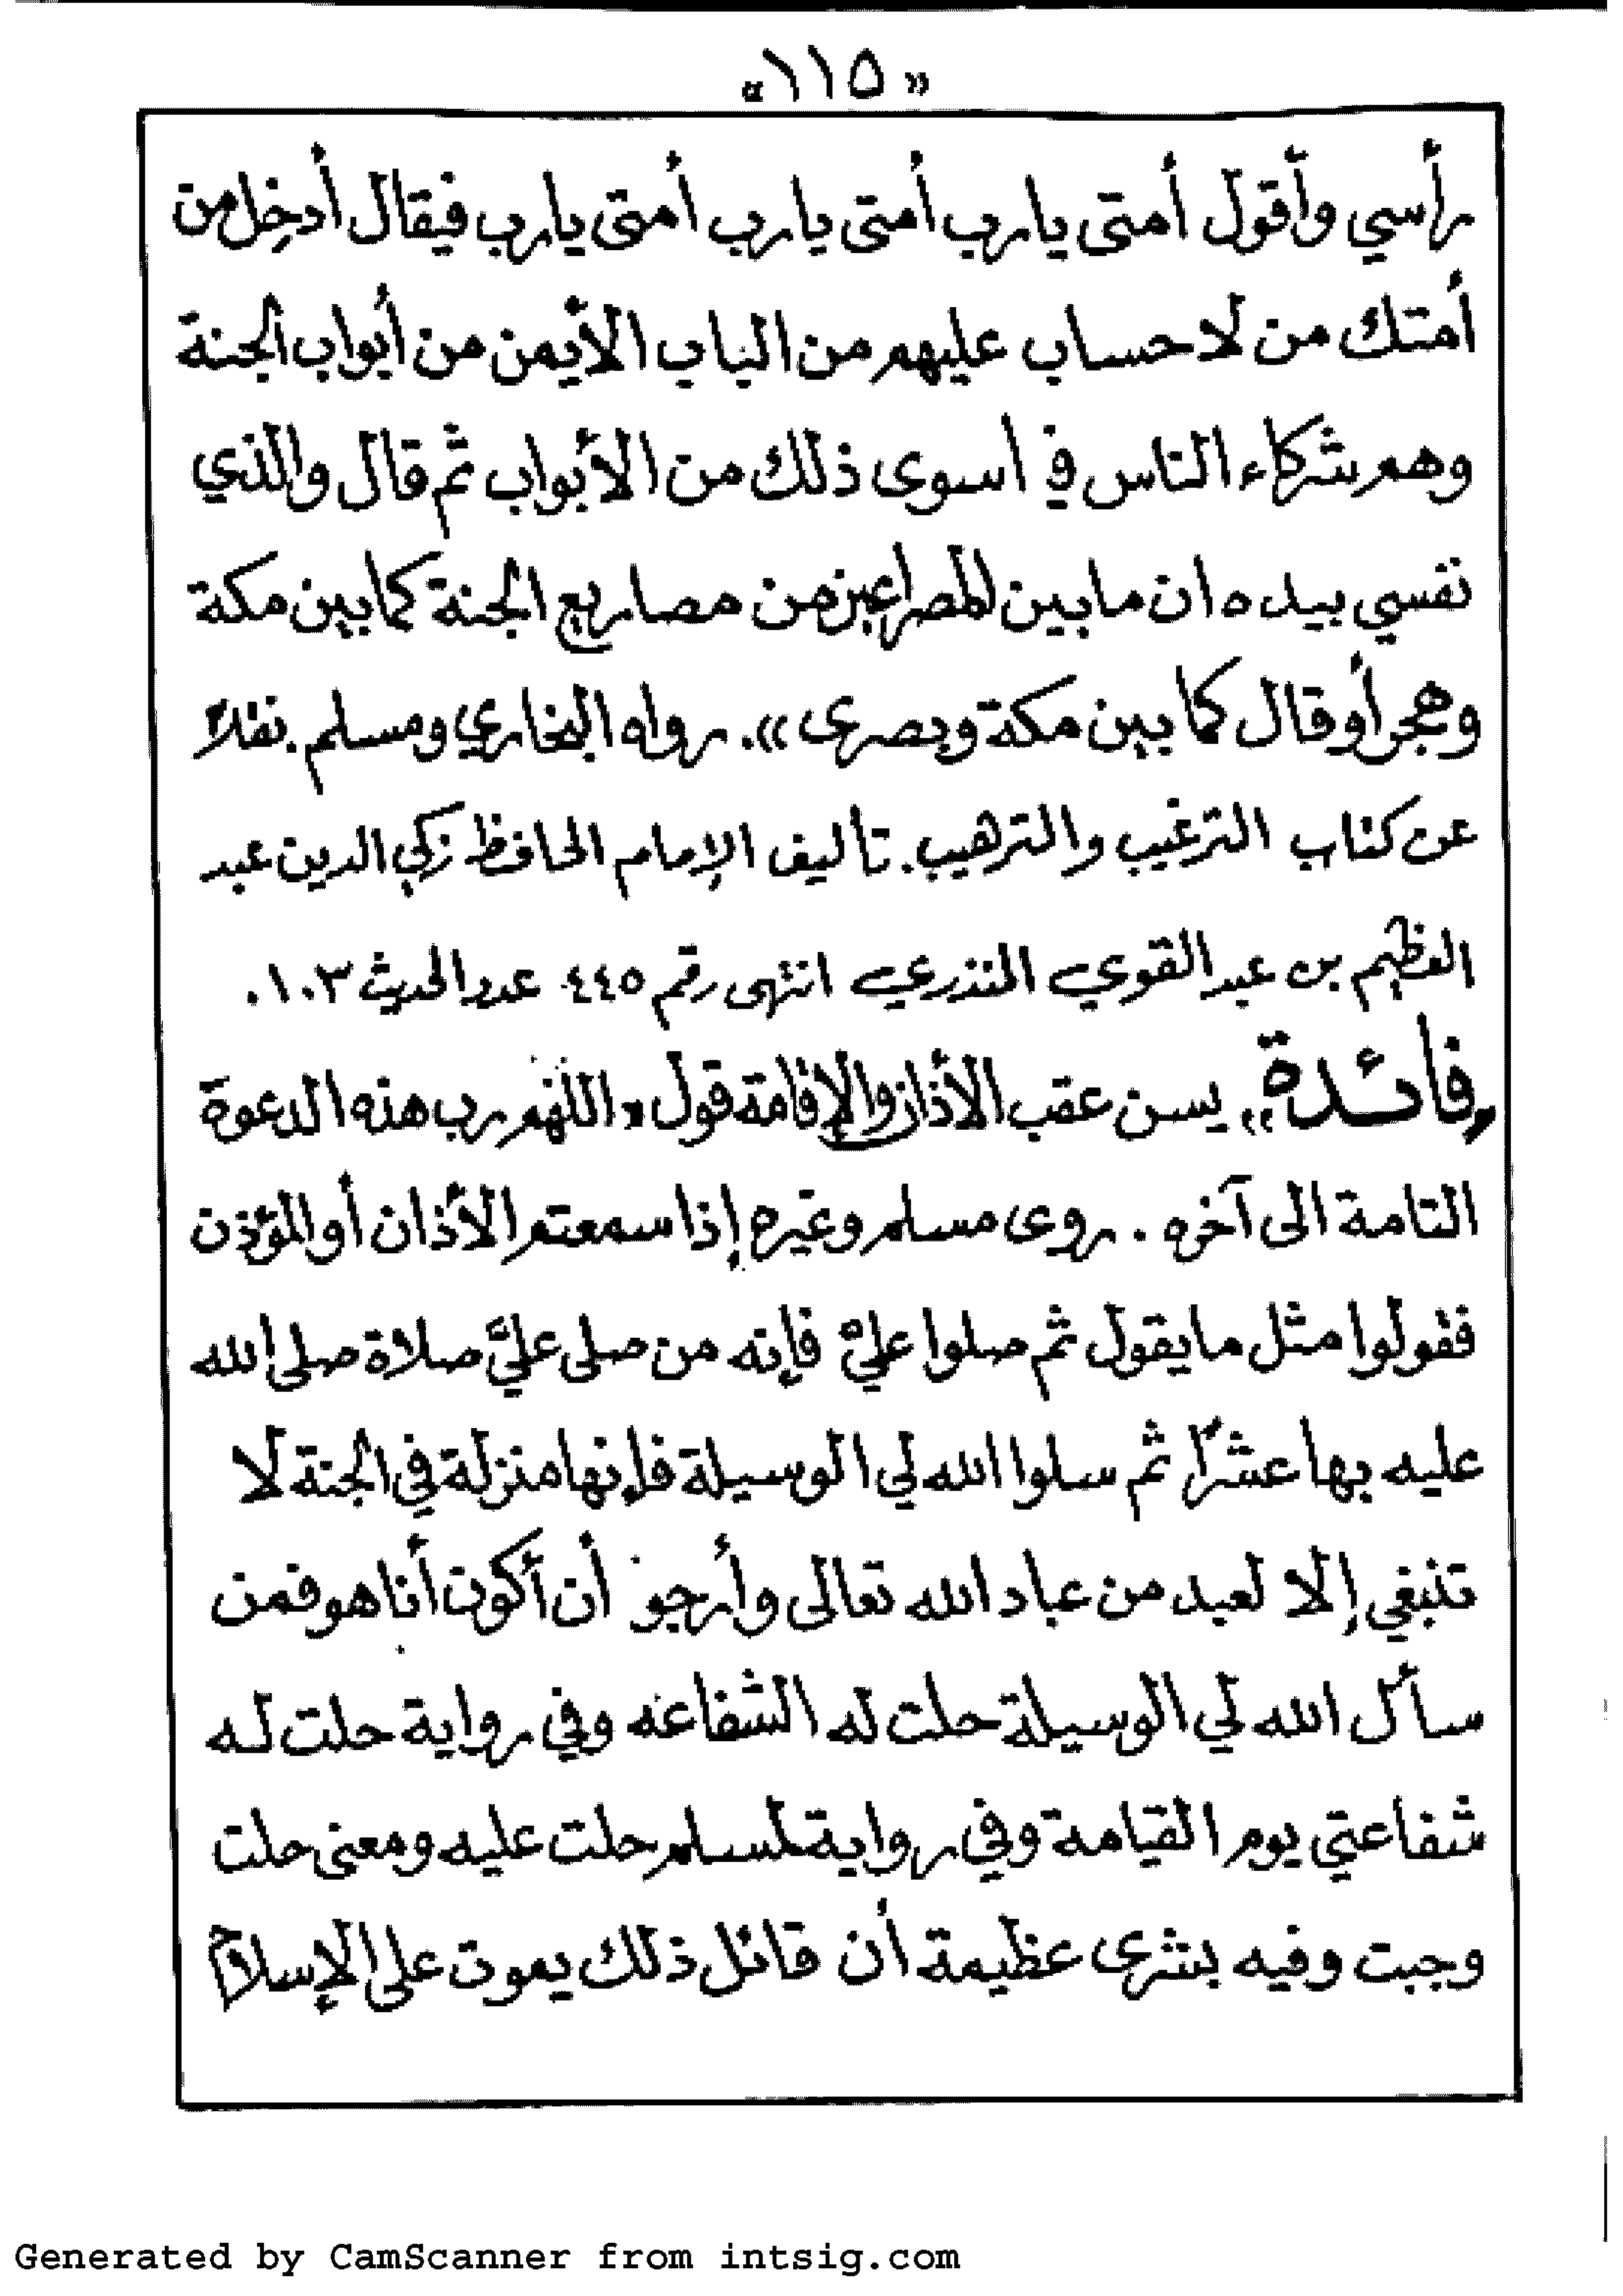 «١١٥»
رأسي وأقول أمتى يارب أمتى يارب أمتى يارب فيقال أدخل من
أمتك من لا حساب عليهم من الباب الأيمن من أبواب الجنة
وهم شركاء الناس في اسوى ذلك من الأبواب ثم قال والذي
نفسي بيده ان ما بين المصراعين من مصاريع الجنة كما بين مكة
وهجر أو قال كما بين مكة وبصرى». رواه البخاري ومسلم. نقلاً
عن كتاب الترغيب والترهيب. تأليف الإمام الحافظ زكي الدين عبد
العظيم بن عبد القوي المنذري انتهى رقم ٤٤٥ عدد الحديث ١٠٣.
«فائدة» يسن عقب الأذان والإقامة قول «اللهم رب هذه الدعوة
التامة الى آخره. روى مسلم وغيره إذا سمعتم الأذان أو المؤذن
فقولوا مثل ما يقول ثم صلوا عليَّ فإنه من صلى عليَّ صلاة صلى الله
عليه بها عشرًا ثم سلوا الله لي الوسيلة فإنها منزلة في الجنة لا
تنبغي إلا لعبد من عباد الله تعالى وأرجو أن أكون أنا هو فمن
سأل الله لي الوسيلة حلت له الشفاعه وفي رواية حلت له
شفاعتي يوم القيامة وفي رواية لمسلم حلت عليه ومعنى حلت
وجبت وفيه بشرى عظيمة أن قائل ذلك يموت على الإسلام
Generated by CamScanner from intsig.com